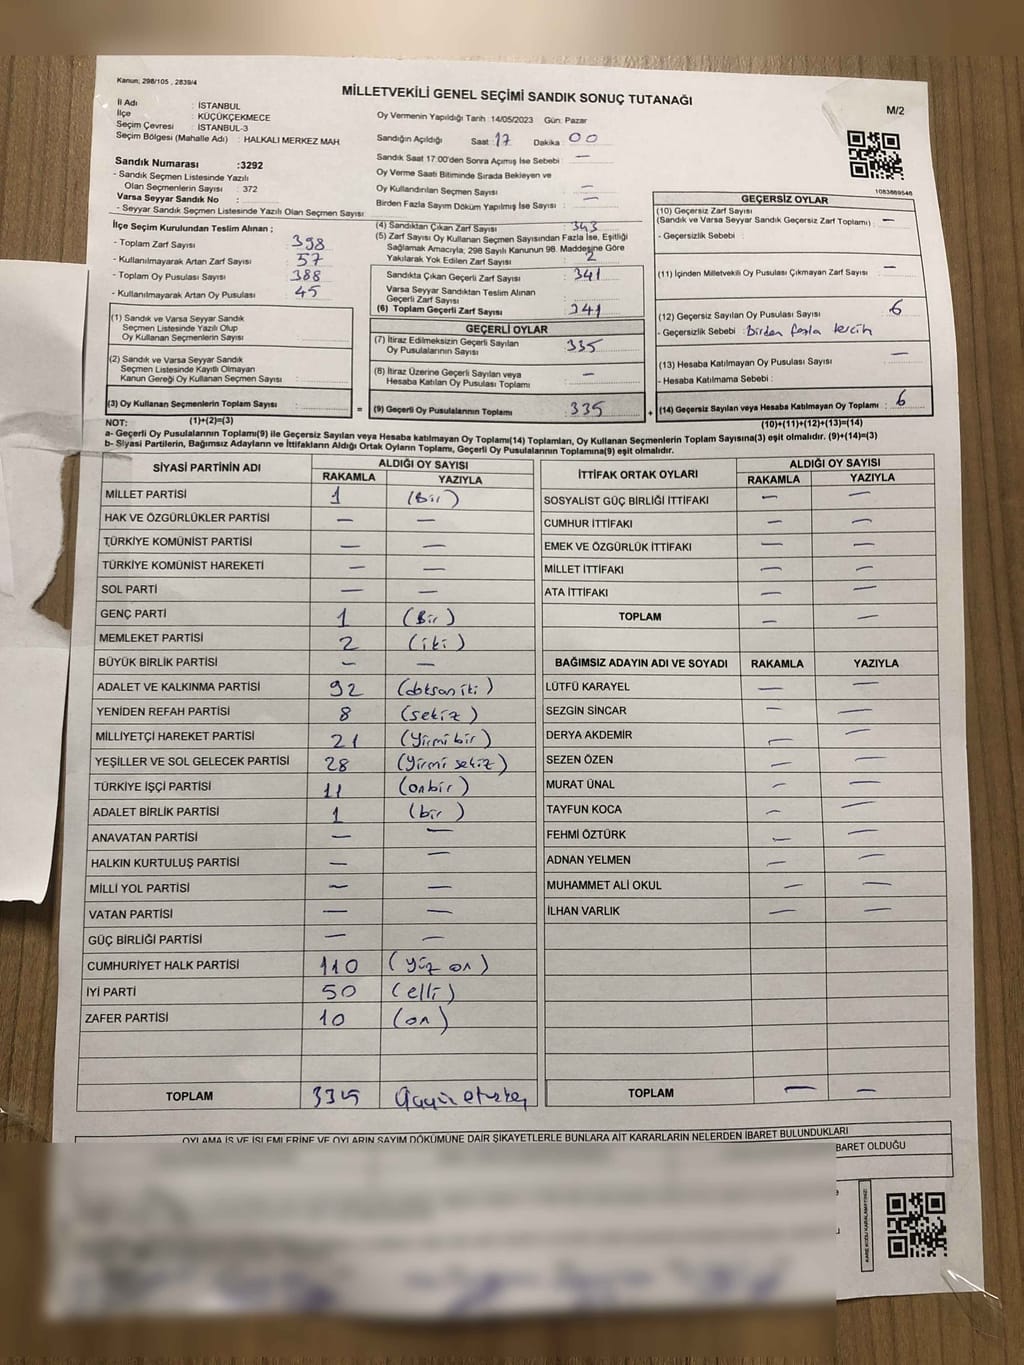 Kanun; 298/105 , 2839/4
MİLLETVEKİLİ GENEL SEÇİMİ SANDIK SONUÇ TUTANAĞI
M/2
İl Adı : İSTANBUL
İlçe : KÜÇÜKÇEKMECE
Seçim Çevresi : İSTANBUL-3
Seçim Bölgesi (Mahalle Adı) : HALKALI MERKEZ MAH
Sandık Numarası :3292
- Sandık Seçmen Listesinde Yazılı
Olan Seçmenlerin Sayısı : 372
Varsa Seyyar Sandık No :
- Seyyar Sandık Seçmen Listesinde Yazılı Olan Seçmen Sayısı
Oy Vermenin Yapıldığı Tarih :14/05/2023 Gün: Pazar
Sandığın Açıldığı Saat :17 Dakika :00
Sandık Saat 17:00'den Sonra Açımış İse Sebebi : —
Oy Verme Saati Bitiminde Sırada Bekleyen ve
Oy Kullandırılan Seçmen Sayısı : —
Birden Fazla Sayım Döküm Yapılmış İse Sayısı : —
1083869546
İlçe Seçim Kurulundan Teslim Alınan ;
- Toplam Zarf Sayısı : 398
- Kullanılmayarak Artan Zarf Sayısı : 57
- Toplam Oy Pusulası : 388
- Kullanılmayarak Artan Oy Pusulası : 45
(1) Sandık ve Varsa Seyyar Sandık
Seçmen Listesinde Yazılı Olup
Oy Kullanan Seçmenlerin Sayısı :
(2) Sandık ve Varsa Seyyar Sandık
Seçmen Listesinde Kayıtlı Olmayan
Kanun Gereği Oy Kullanan Seçmen Sayısı :
(3) Oy Kullanan Seçmenlerin Toplam Sayısı :
(1)+(2)=(3)
(4) Sandıktan Çıkan Zarf Sayısı : 343
(5) Zarf Sayısı Oy Kullanan Seçmen Sayısından Fazla İse, Eşitliği
Sağlamak Amacıyla, 298 Sayılı Kanunun 98. Maddesine Göre
Yakılarak Yok Edilen Zarf Sayısı : 2
Sandıkta Çıkan Geçerli Zarf Sayısı : 341
Varsa Seyyar Sandıktan Teslim Alınan
Geçerli Zarf Sayısı :
(6) Toplam Geçerli Zarf Sayısı : 341
GEÇERLİ OYLAR
(7) İtiraz Edilmeksizin Geçerli Sayılan
Oy Pusulalarının Sayısı : 335
(8) İtiraz Üzerine Geçerli Sayılan veya
Hesaba Katılan Oy Pusulası Toplamı : —
= (9) Geçerli Oy Pusulalarının Toplamı : 335
GEÇERSİZ OYLAR
(10) Geçersiz Zarf Sayısı
(Sandık ve Varsa Seyyar Sandık Geçersiz Zarf Toplamı) : —
- Geçersizlik Sebebi :
(11) İçinden Milletvekili Oy Pusulası Çıkmayan Zarf Sayısı : —
(12) Geçersiz Sayılan Oy Pusulası Sayısı : 6
- Geçersizlik Sebebi : Birden fazla tercih
(13) Hesaba Katılmayan Oy Pusulası Sayısı : —
- Hesaba Katılmama Sebebi :
+ (14) Geçersiz Sayılan veya Hesaba Katılmayan Oy Toplamı : 6
(10)+(11)+(12)+(13)=(14)
NOT:
a- Geçerli Oy Pusulalarının Toplamı(9) ile Geçersiz Sayılan veya Hesaba katılmayan Oy Toplamı(14) Toplamları, Oy Kullanan Seçmenlerin Toplam Sayısına(3) eşit olmalıdır. (9)+(14)=(3)
b- Siyasi Partilerin, Bağımsız Adayların ve İttifakların Aldığı Ortak Oyların Toplamı, Geçerli Oy Pusulalarının Toplamına(9) eşit olmalıdır.
SİYASİ PARTİNİN ADI ALDIĞI OY SAYISI
RAKAMLA YAZIYLA
MİLLET PARTİSİ 1 (Bir)
HAK VE ÖZGÜRLÜKLER PARTİSİ — —
TÜRKİYE KOMÜNİST PARTİSİ — —
TÜRKİYE KOMÜNİST HAREKETİ — —
SOL PARTİ — —
GENÇ PARTİ 1 (Bir)
MEMLEKET PARTİSİ 2 (iki)
BÜYÜK BİRLİK PARTİSİ — —
ADALET VE KALKINMA PARTİSİ 92 (doksan iki)
YENİDEN REFAH PARTİSİ 8 (sekiz)
MİLLİYETÇİ HAREKET PARTİSİ 21 (Yirmi bir)
YEŞİLLER VE SOL GELECEK PARTİSİ 28 (Yirmi sekiz)
TÜRKİYE İŞÇİ PARTİSİ 11 (onbir)
ADALET BİRLİK PARTİSİ 1 (bir)
ANAVATAN PARTİSİ — —
HALKIN KURTULUŞ PARTİSİ — —
MİLLİ YOL PARTİSİ — —
VATAN PARTİSİ — —
GÜÇ BİRLİĞİ PARTİSİ — —
CUMHURİYET HALK PARTİSİ 110 (yüz on)
İYİ PARTİ 50 (elli)
ZAFER PARTİSİ 10 (on)
TOPLAM 335
İTTİFAK ORTAK OYLARI ALDIĞI OY SAYISI
RAKAMLA YAZIYLA
SOSYALİST GÜÇ BİRLİĞİ İTTİFAKI — —
CUMHUR İTTİFAKI — —
EMEK VE ÖZGÜRLÜK İTTİFAKI — —
MİLLET İTTİFAKI — —
ATA İTTİFAKI — —
TOPLAM — —
BAĞIMSIZ ADAYIN ADI VE SOYADI RAKAMLA YAZIYLA
LÜTFÜ KARAYEL — —
SEZGİN SİNCAR — —
DERYA AKDEMİR — —
SEZEN ÖZEN — —
MURAT ÜNAL — —
TAYFUN KOCA — —
FEHMİ ÖZTÜRK — —
ADNAN YELMEN — —
MUHAMMET ALİ OKUL — —
İLHAN VARLIK — —
TOPLAM — —
OYLAMA İŞ VE İŞLEMLERİNE VE OYLARIN SAYIM DÖKÜMÜNE DAİR ŞİKAYETLERLE BUNLARA AİT KARARLARIN NELERDEN İBARET BULUNDUKLARI
BARET OLDUĞU
KARE KODU KARALAMAYINIZ!